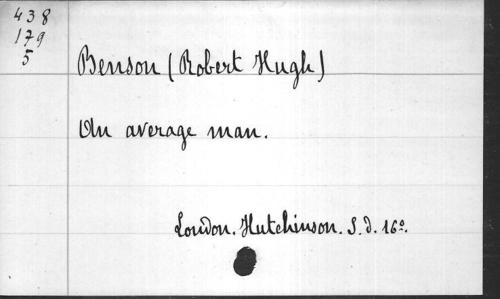 438
179
5
Benson (Robert Hugh)
An average man.
London. Hutchinson. S. d. 16º.